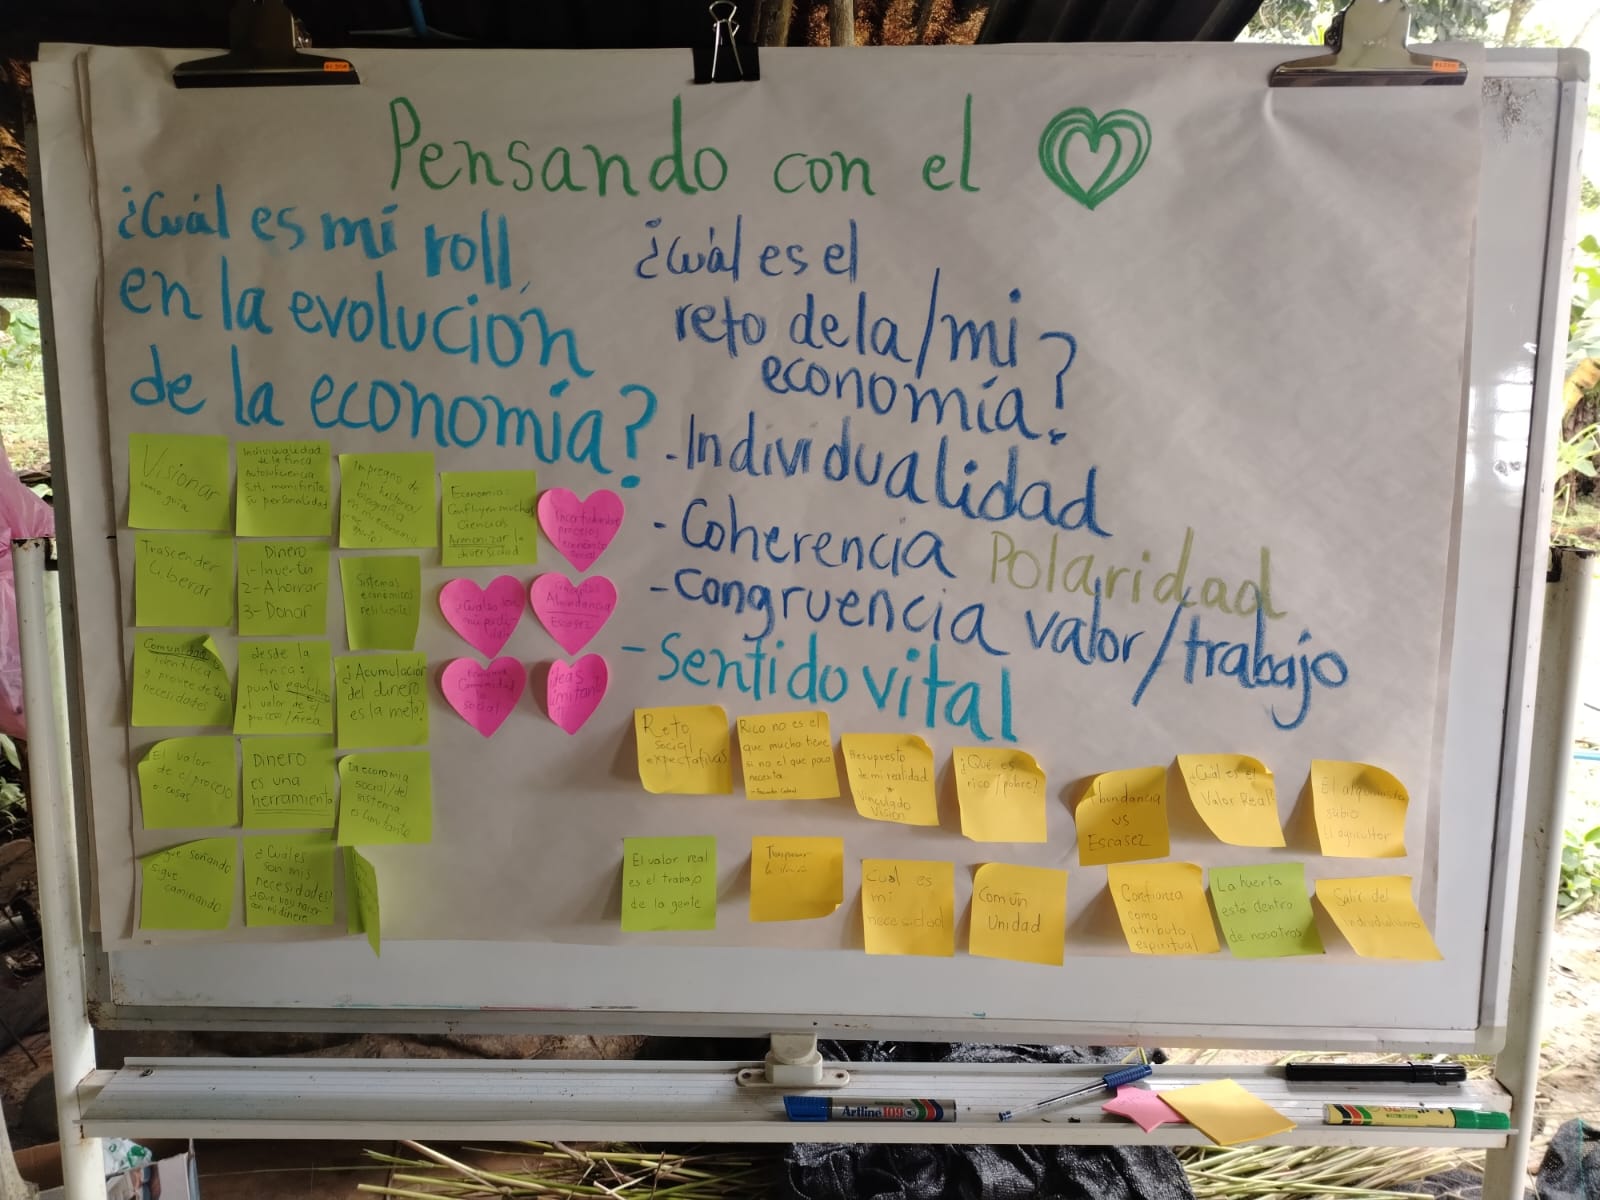 Pensando con el
¿Cuál es mi roll
en la evolución
de la economía?
Visionar
como guía
Individualidad
de la finca
Autosuficiencia
S.H. manifiesta
su personalidad
Impregno de
mi historia/
biografía
en mi economía
Economía:
Confluyen muchas
Ciencias
Armonizar la
diversidad
Incertidumbre
procesos
económico
social
Trascender
Liberar
Dinero
1- Invertir
2- Ahorrar
3- Donar
Sistemas
económicos
Abundancia
Escasez
Comunidad
identifica
y provee de sus
necesidades
desde la
finca:
punto equilibrio
el valor de c/
proceso/Área
¿Acumulación
del dinero
es la meta?
Economía
Comunidad
lo
social
Ideas
limitantes
El valor
de c/proceso
o cosas
Dinero
es una
herramienta
La economía
social/del
sistema
es limitante
Sigue soñando
sigue
caminando
¿Cuáles
son mis
necesidades?
¿Que voy hacer
con mi dinero
¿Cuál es el
reto de la/mi
economía?
-Individualidad
-Coherencia Polaridad
-Congruencia valor/trabajo
-Sentido vital
Reto
social
expectativas
Rico no es el
que mucho tiene
si no el que poco
necesita.
Presupuesto
de mi realidad
*
Vinculado
Visión
¿Qué es
rico/pobre?
Abundancia
vs
Escasez
¿Cuál es el
Valor Real?
El alquimista
subio
El agricultor
El valor real
es el trabajo
de la gente
Cual es
mi
necesidad
Común
Unidad
Confianza
como
atributo
espiritual
La huerta
está dentro
de nosotros
Salir del
individualismo
Artline 109